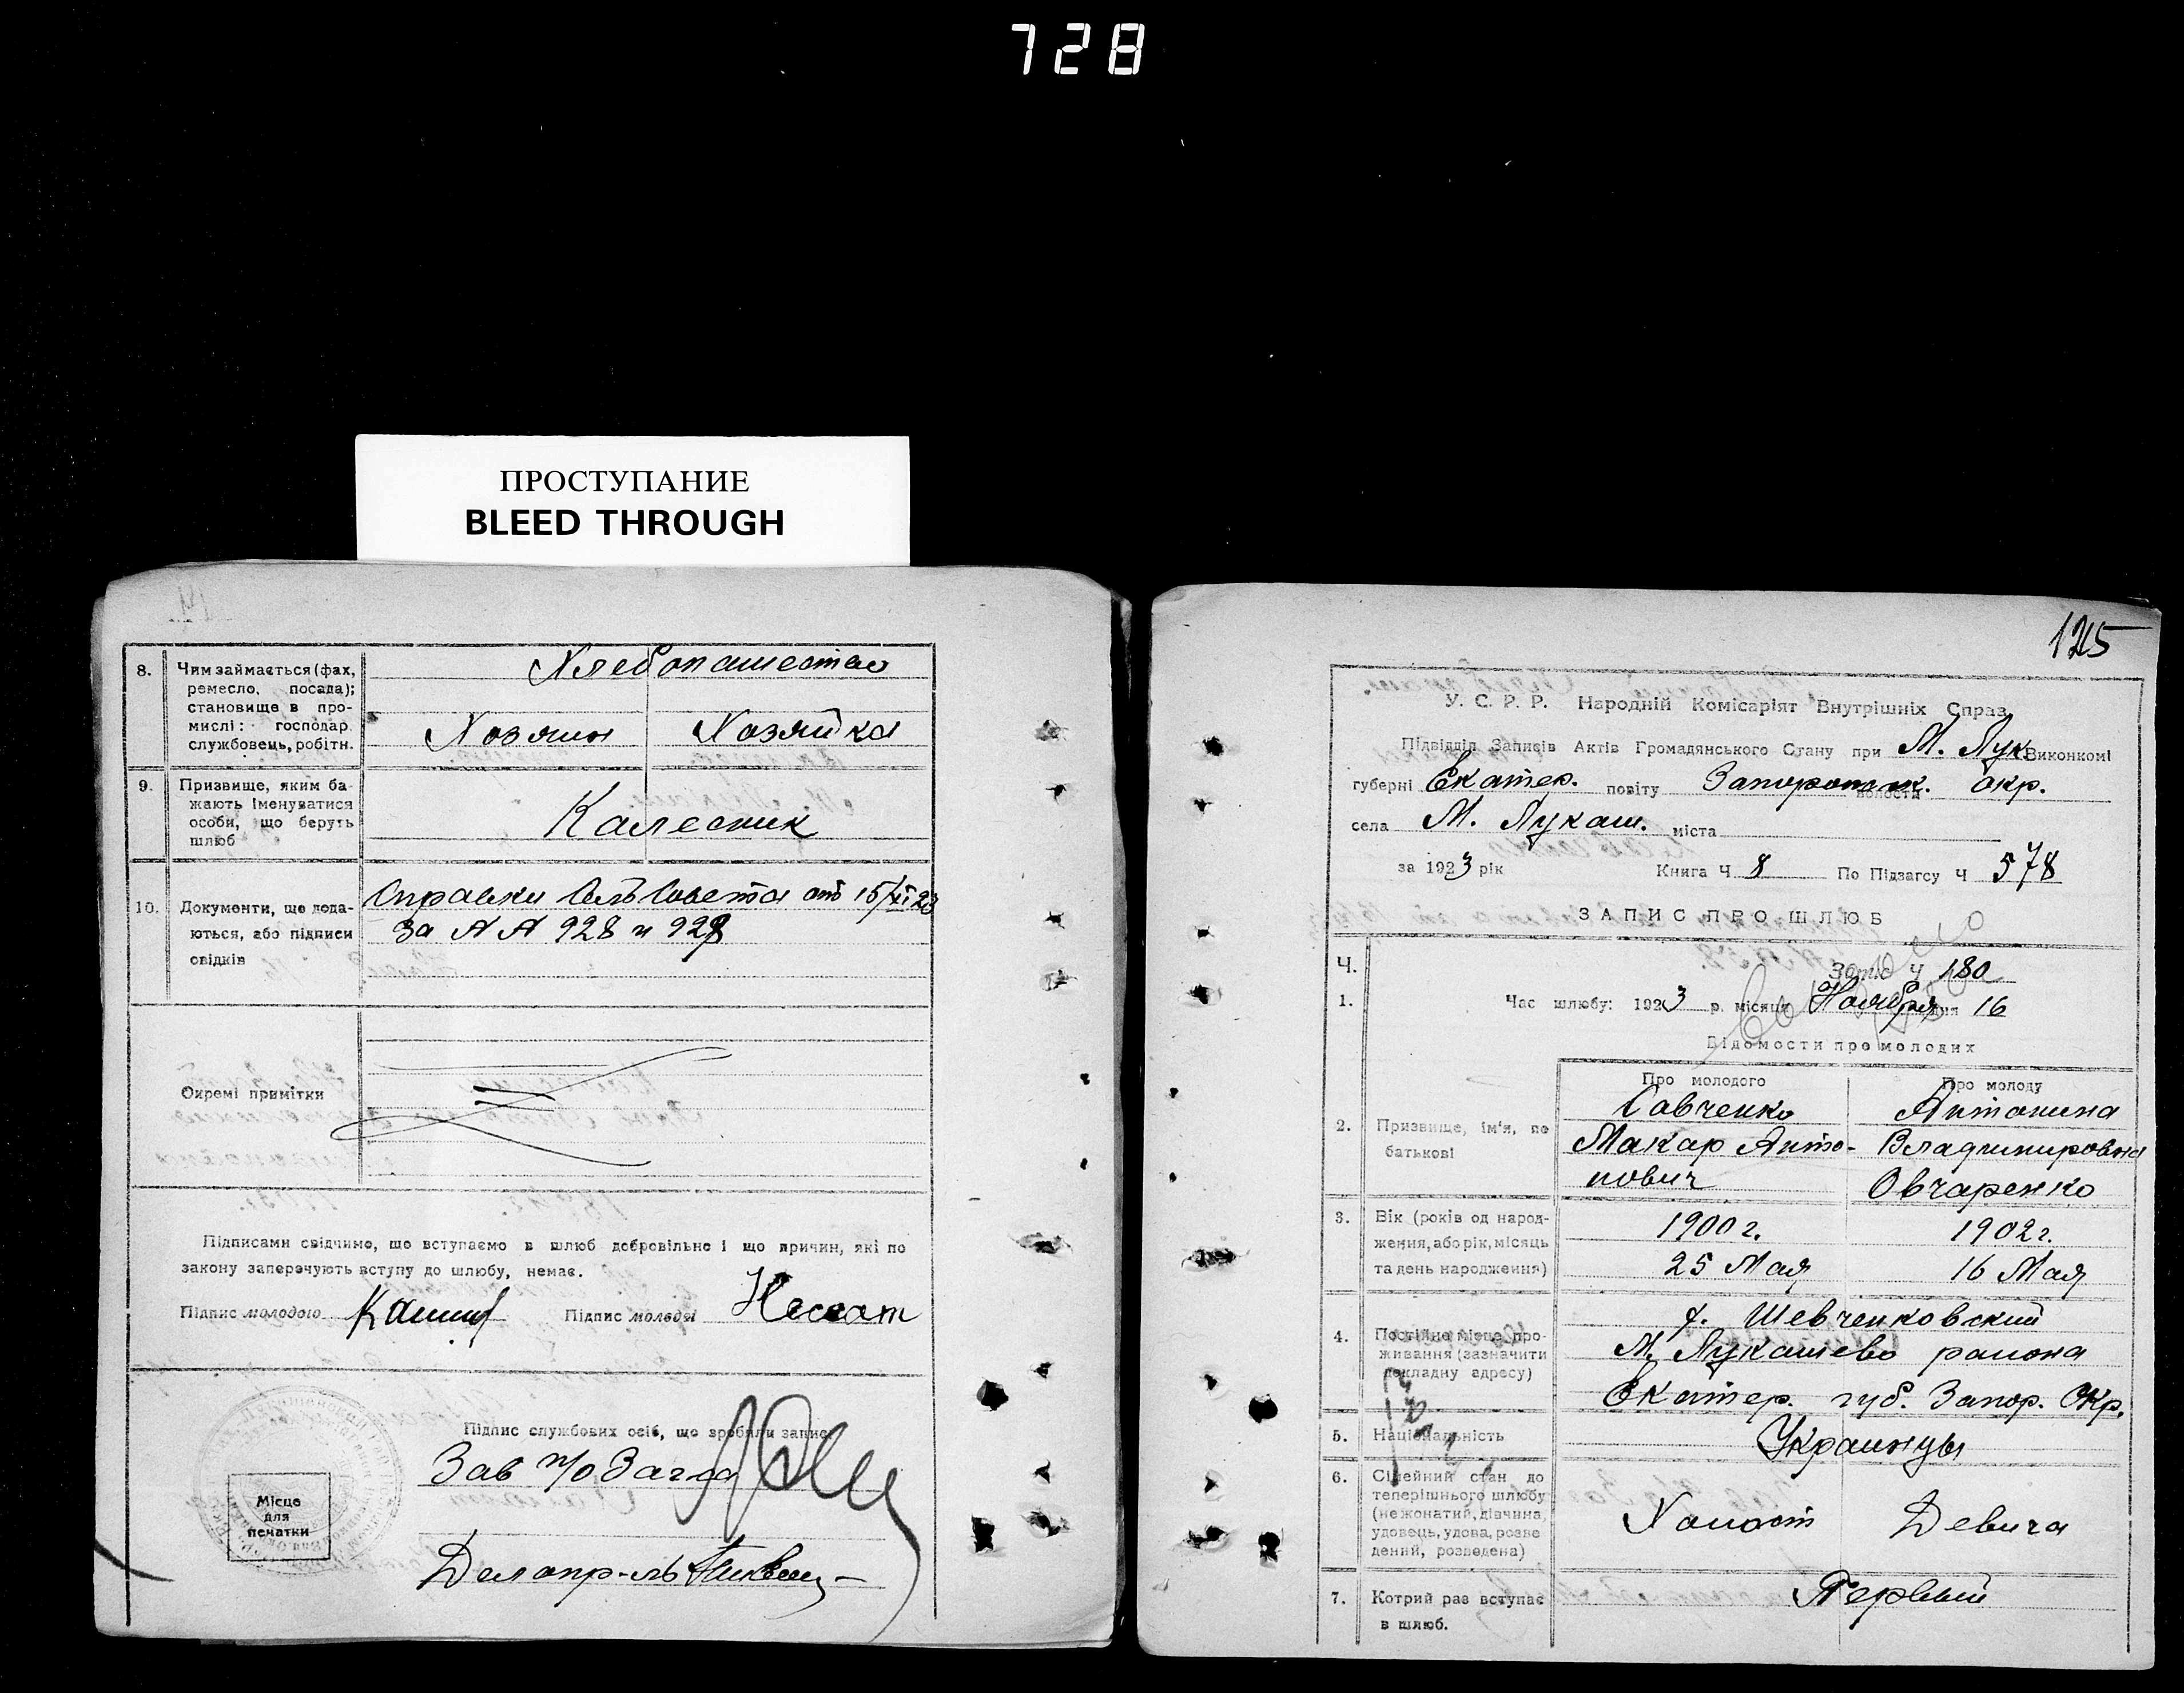 728
ПРОСТУПАНИЕ
BLEED THROUGH
8. Чим займається (фах,
ремесло, посада);
становище в про-
мислі: господар
службовець, робітн.
Хлебопашество
Хозяин Хозяйка
9. Призвище, яким ба-
жають іменуватися
особи, що беруть
шлюб
Калесник
10. Документи, що пода-
ються, або підписи
свідків
Справки Сель Совета от 15/XI 23
за № № 928 и 929
Окремі примітки
Підписами свідчимо, що вступаємо в шлюб добровільно і що причин, які по
закону заперечують вступу до шлюбу, немає.
Підпис молодого Підпис молодої
Підпис службових осіб, що зробили запис
Зав п/о Загса
Місце
для
печатки
Делопр-ль
125
У. С. Р. Р. Народній Комісаріят Внутрішніх Справ
Підвідділ Записів Актів Громадянського Стану при М. Лук. Виконкомі
губерні Екатер. повіту Запорожск. волости Окр.
села М. Лукаш. міста
за 1923 рік Книга Ч 8 По Підзагсу Ч 578
ЗАПИС ПРО ШЛЮБ
Ч. Запис Ч 180
1. Час шлюбу: 1923 р. місяця Ноября дня 16
Відомости про молодих
Про молодого Про молоду
2. Призвище, ім'я, по
батькові
Савченко
Макар Анто-
нович
Антонина
Владимировна
Овчаренко
3. Вік (років од народ-
ження, або рік, місяць
та день народження)
1900 г. 1902 г.
25 Мая 16 Мая
4. Постійне місце про-
живання (зазначити
докладну адресу)
х. Шевченковский
М. Лукашево района
Екатер. губ. Запор. Окр.
5. Національність
Украинцы
6. Сімейний стан до
теперішнього шлюбу
(нежонатий, дівчина,
удовець, удова, розве
дений, розведена)
Холост Девица
7. Котрий раз вступає
в шлюб.
Первый